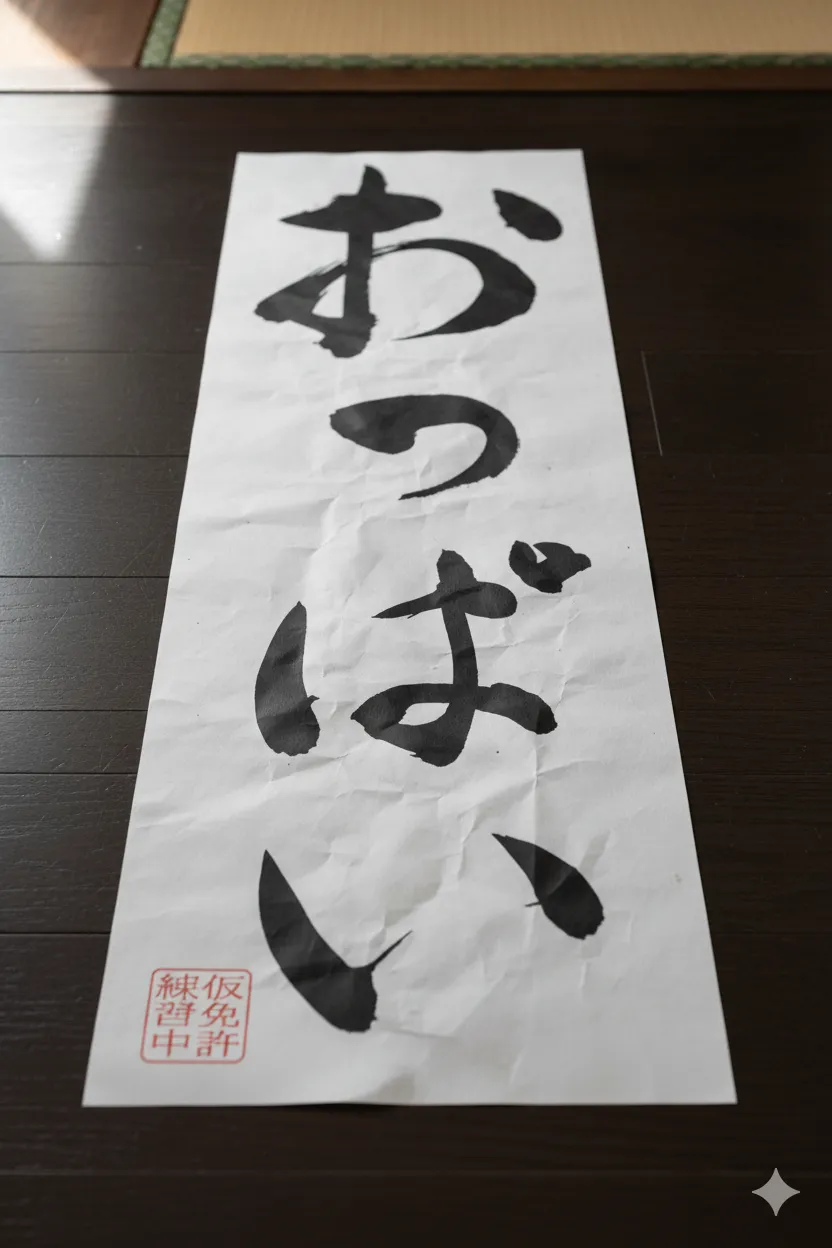 おっばい
仮免許
練習中